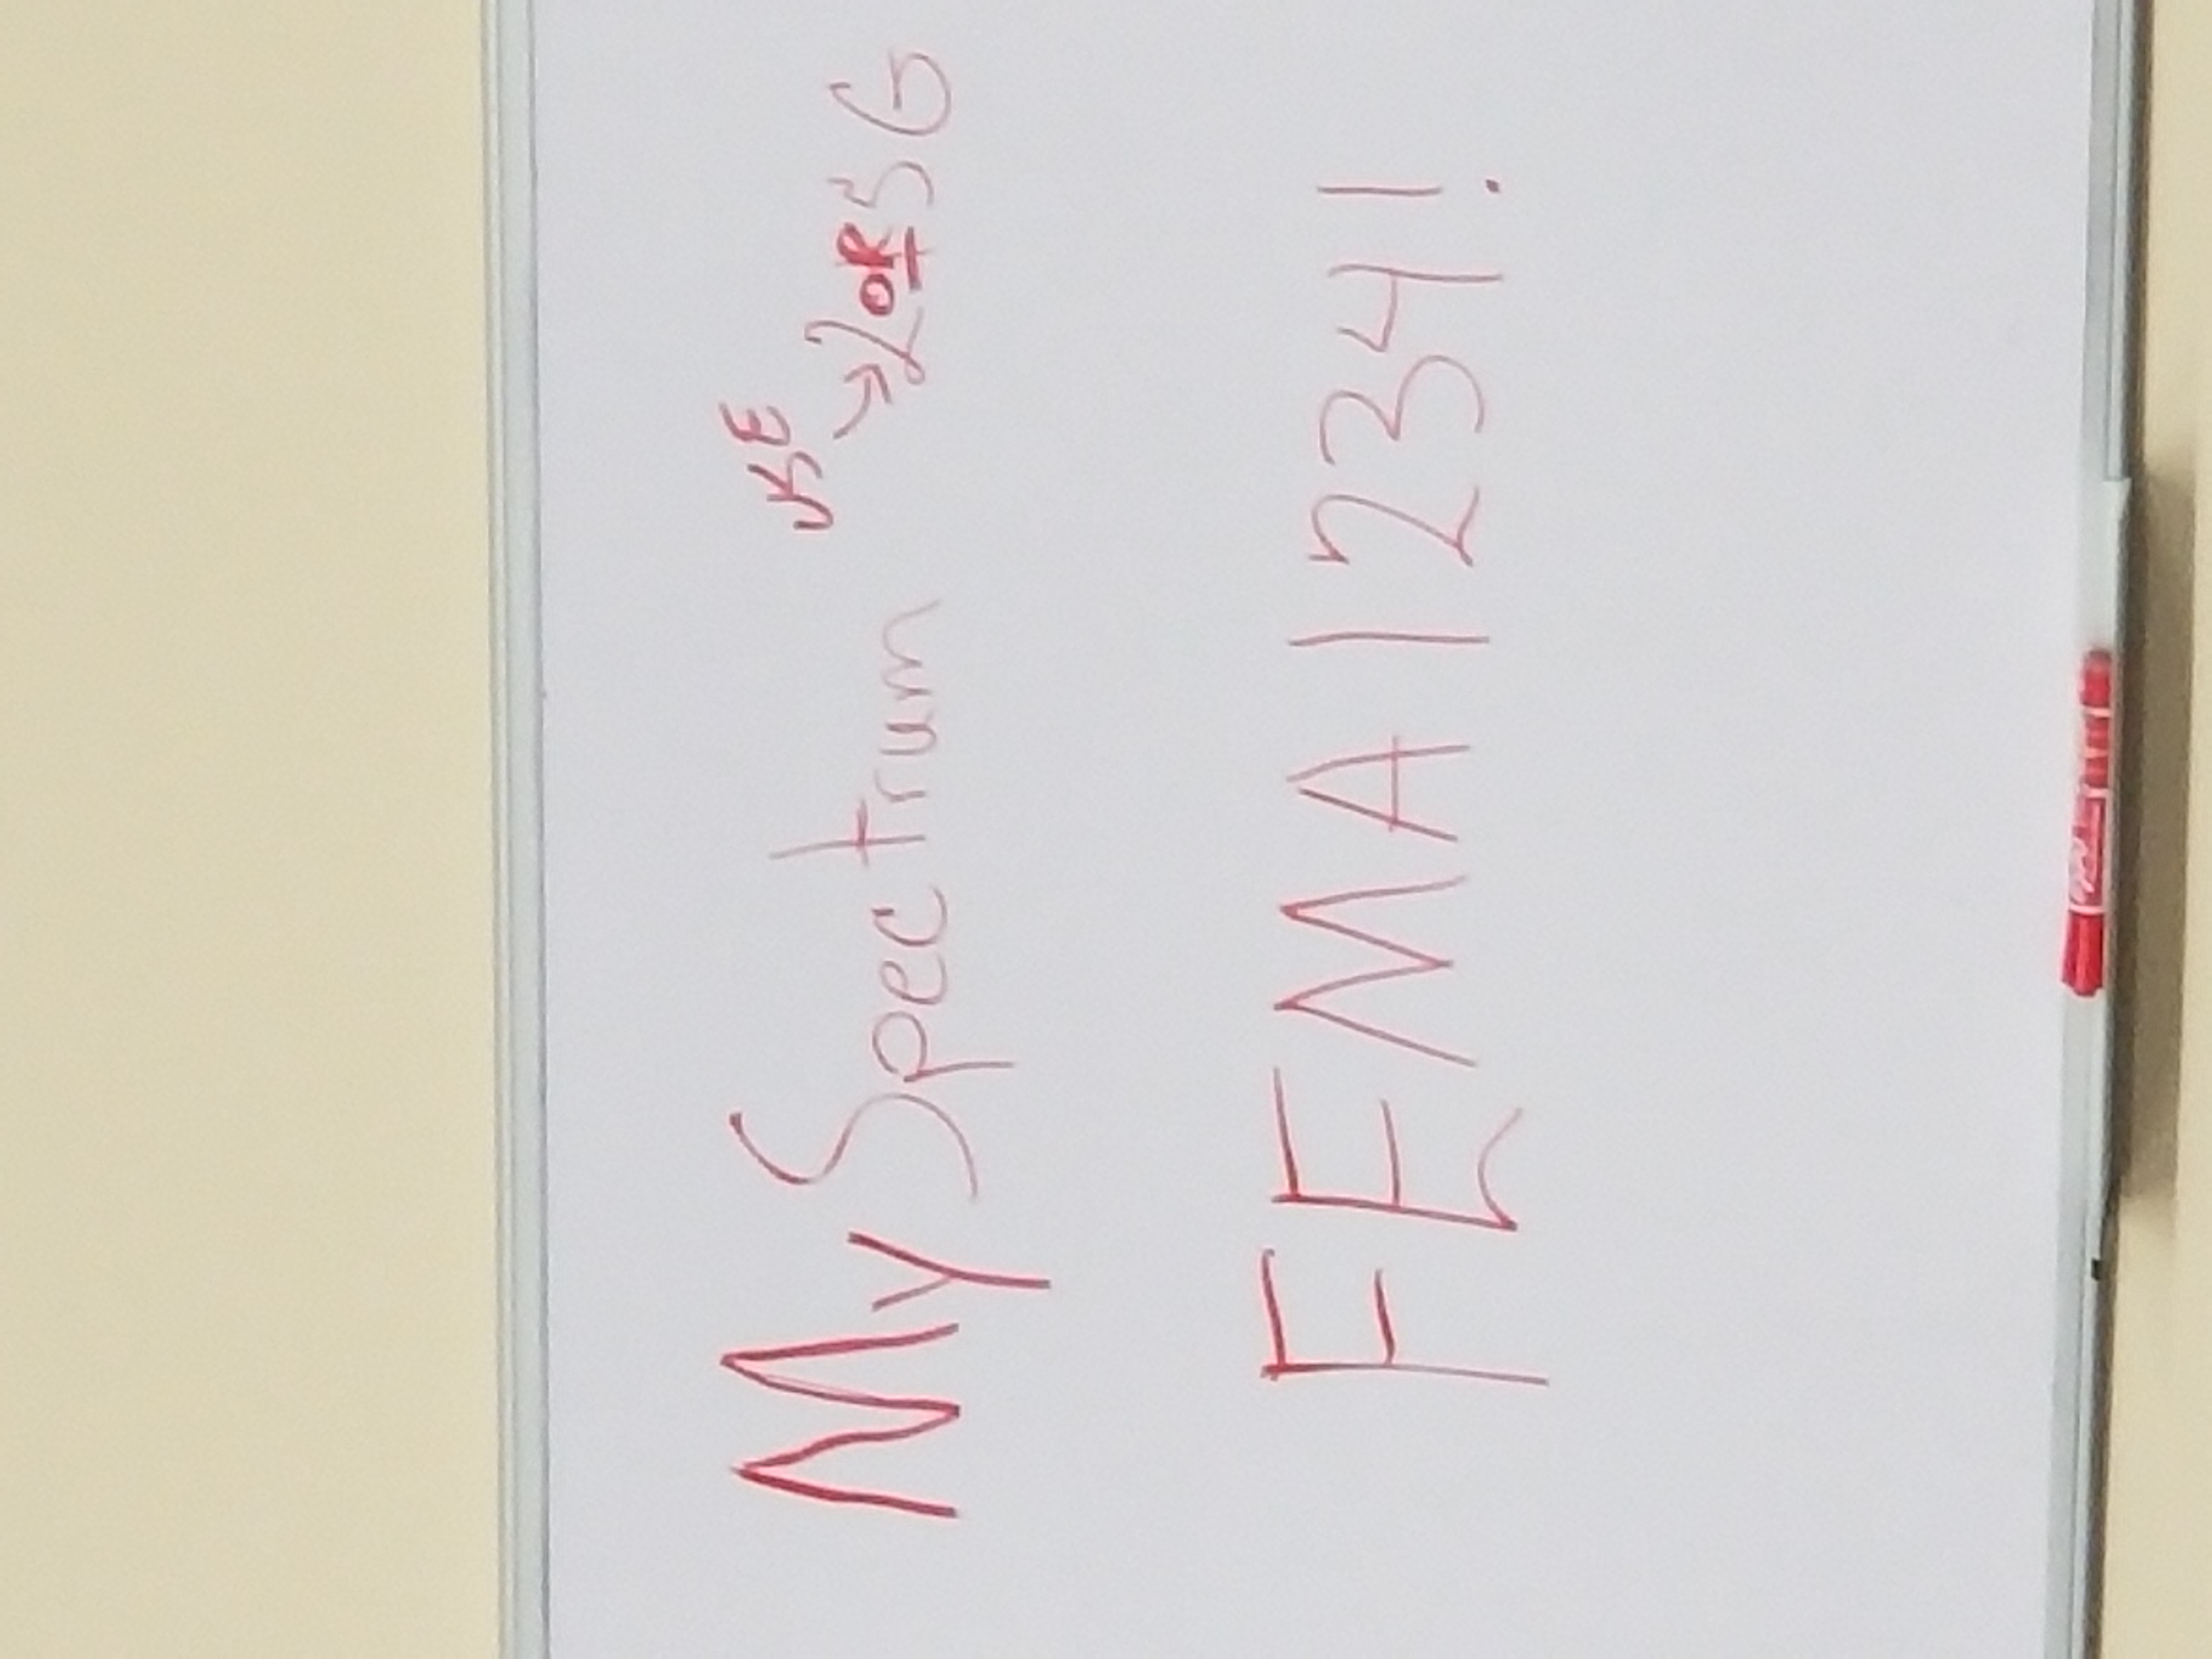 My Spectrum USE → 2 OR 5 G
FEMA1234!